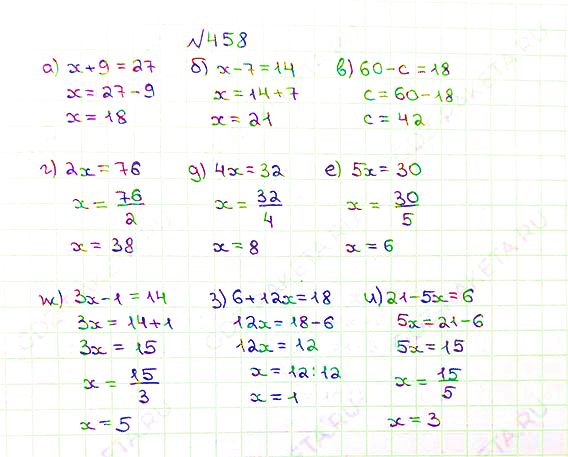 №458
а) x+9=27 б) x-7=14 в) 60-c=18
x=27-9 x=14+7 c=60-18
x=18 x=21 c=42
г) 2x=76 д) 4x=32 е) 5x=30
x=76/2 x=32/4 x=30/5
x=38 x=8 x=6
ж) 3x-1=14 з) 6+12x=18 и) 21-5x=6
3x=14+1 12x=18-6 5x=21-6
3x=15 12x=12 5x=15
x=15/3 x=12:12 x=15/5
x=5 x=1 x=3